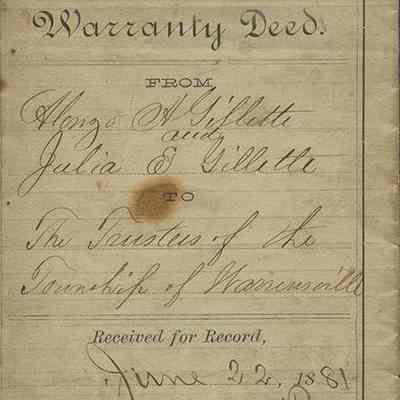 Warranty Deed.
FROM
Alonzo A Gillette
and
Julia E Gillette
TO
The Trustees of the
Township of Warrensville
Received for Record,
June 22, 1881